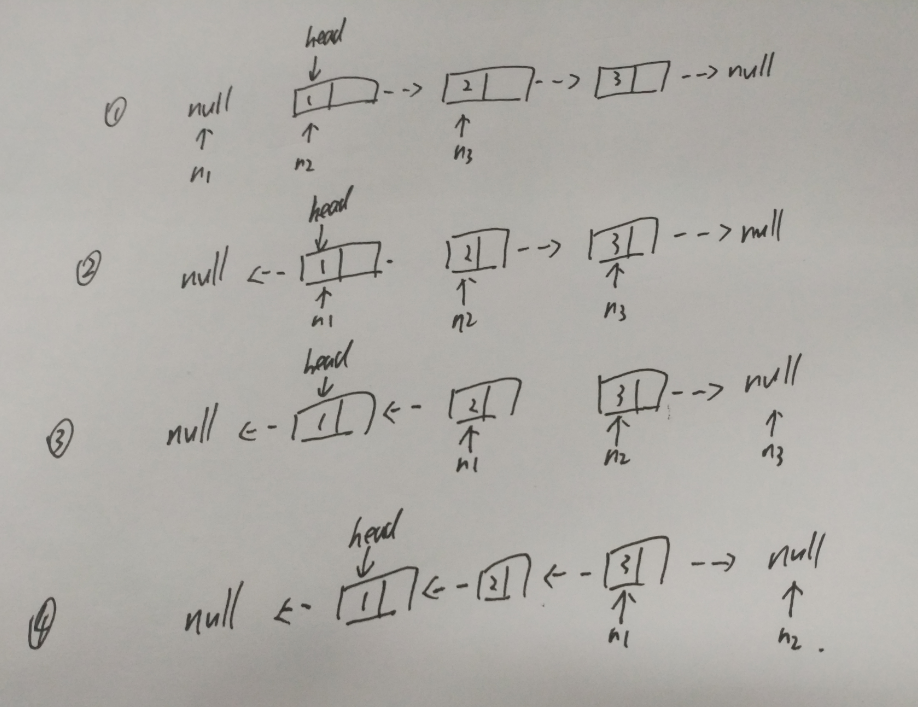 head
① null 1 --> 2 --> 3 --> null
↑ ↑ ↑
n1 n2 n3
head
② null <-- 1 2 --> 3 --> null
↑ ↑ ↑
n1 n2 n3
head
③ null <-- 1 <-- 2 3 --> null
↑ ↑ ↑
n1 n2 n3
head
④ null <-- 1 <-- 2 <-- 3 --> null
↑ ↑
n1 n2.